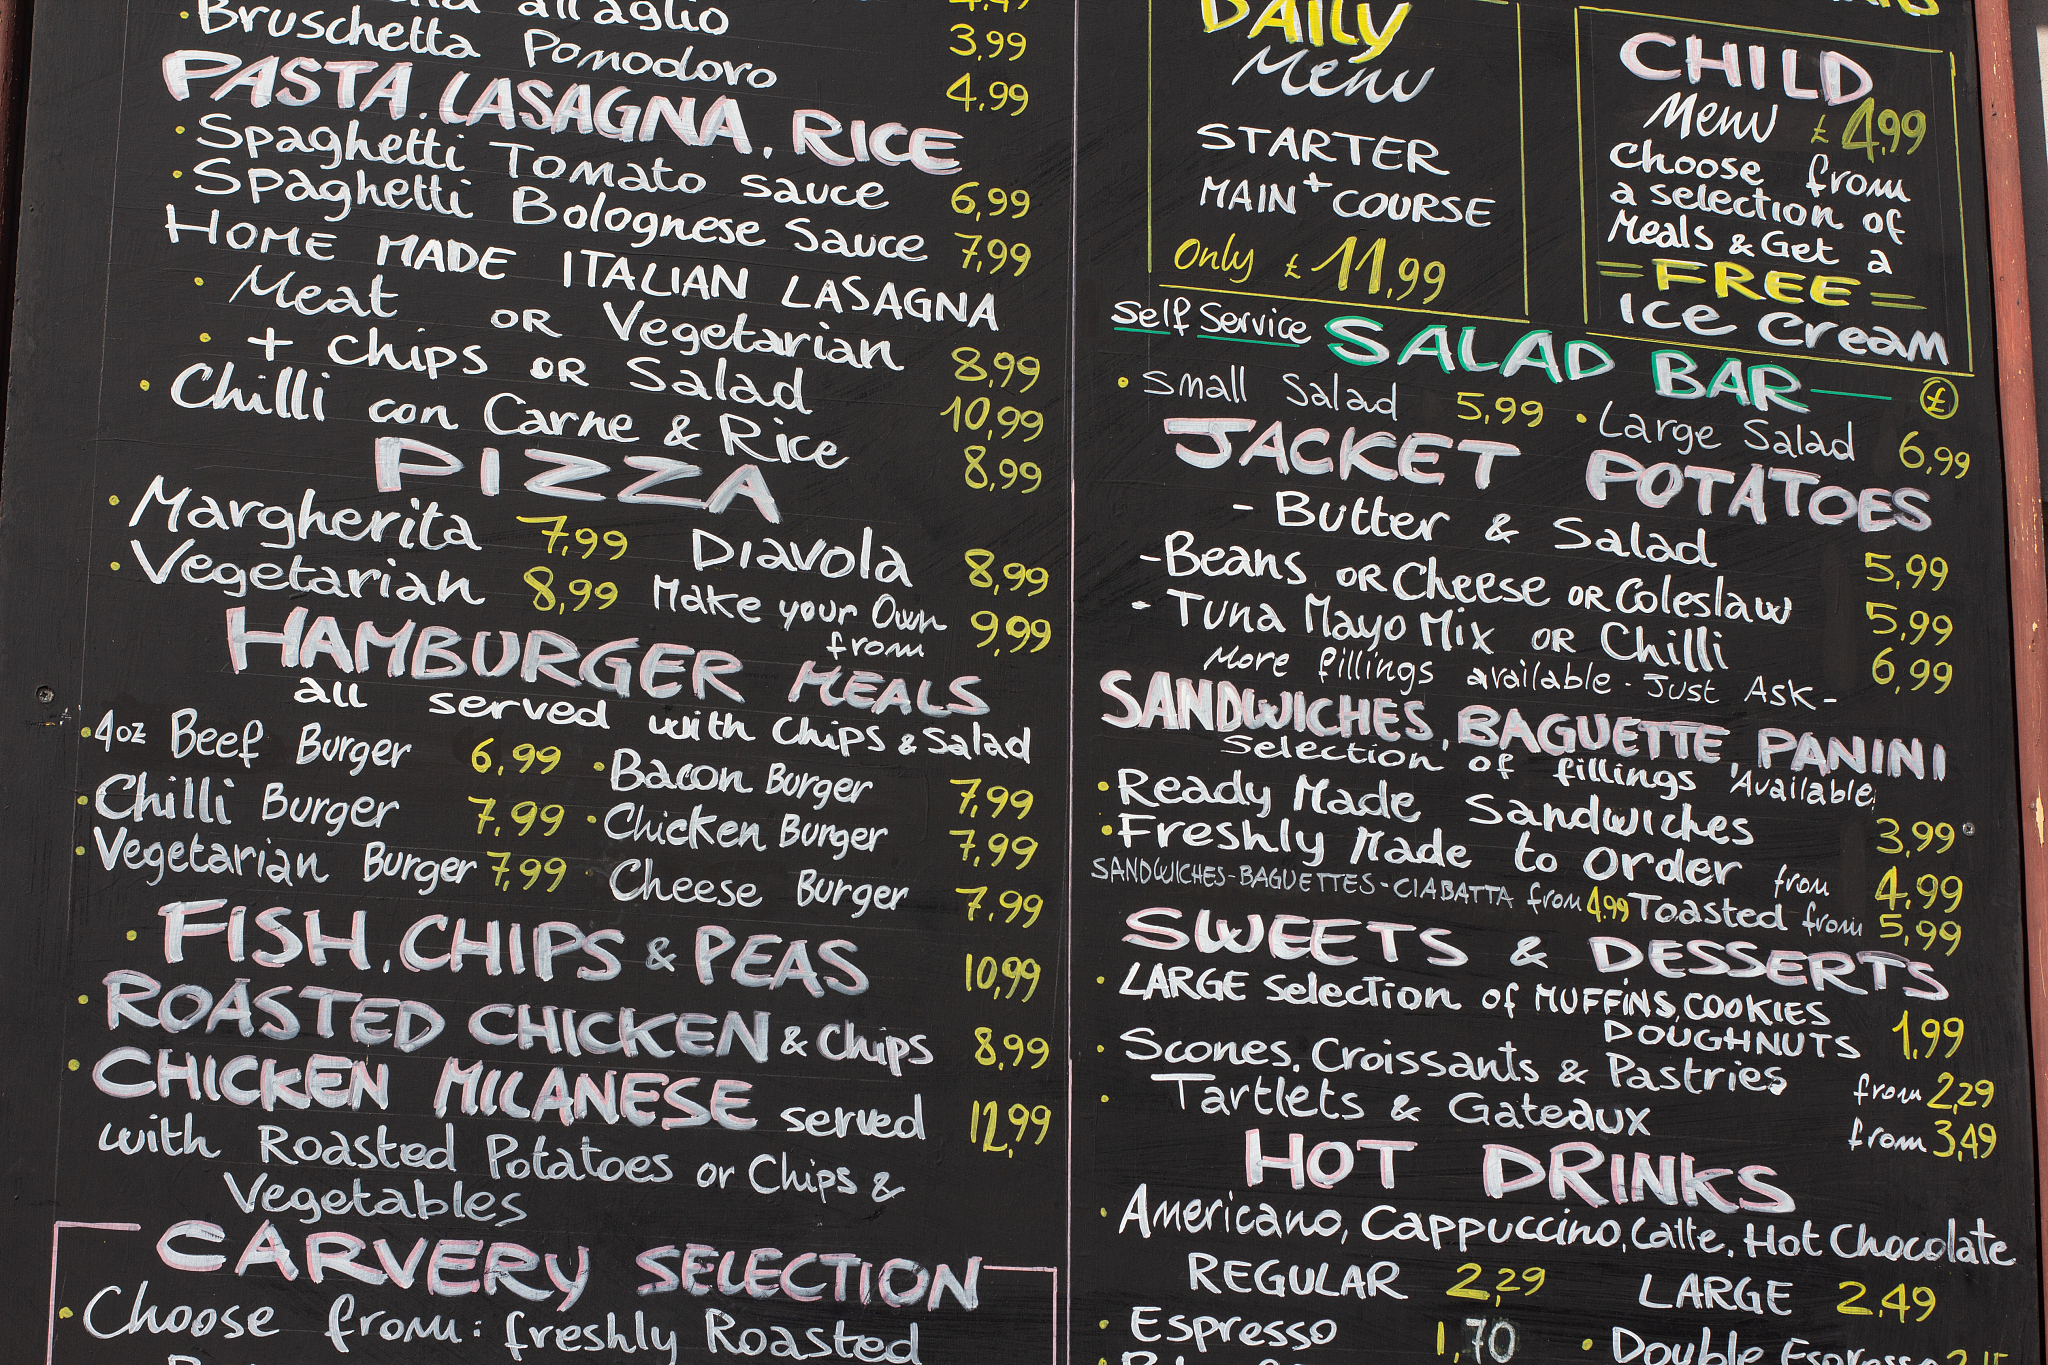 all'aglio
• Bruschetta Pomodoro 3,99
4,99
PASTA, LASAGNA, RICE
• Spaghetti Tomato sauce 6,99
• Spaghetti Bolognese Sauce 7,99
HOME MADE ITALIAN LASAGNA
• Meat OR Vegetarian 8,99
• + Chips OR Salad 10,99
• Chilli con Carne & Rice 8,99
PIZZA
• Margherita 7,99 Diavola 8,99
• Vegetarian 8,99 Make your Own from 9,99
HAMBURGER MEALS
all served with Chips & Salad
• 4oz Beef Burger 6,99 • Bacon Burger 7,99
• Chilli Burger 7,99 • Chicken Burger 7,99
• Vegetarian Burger 7,99 • Cheese Burger 7,99
• FISH, CHIPS & PEAS 10,99
• ROASTED CHICKEN & Chips 8,99
• CHICKEN MILANESE served 12,99
with Roasted Potatoes or Chips &
Vegetables
CARVERY SELECTION
• Choose from: freshly Roasted
DAILY
Menu
STARTER
+
MAIN COURSE
Only £11,99
CHILD
Menu £4,99
Choose from
a selection of
Meals & Get a
=FREE=
Ice Cream
Self Service SALAD BAR £
• Small Salad 5,99 • Large Salad 6,99
JACKET POTATOES
- Butter & Salad 5,99
- Beans OR Cheese OR Coleslaw 5,99
- Tuna Mayo Mix OR Chilli 6,99
More fillings available - Just ASK -
SANDWICHES, BAGUETTE, PANINI
Selection of fillings Available
• Ready Made Sandwiches 3,99
• Freshly Made to Order from 4,99
SANDWICHES-BAGUETTES-CIABATTA from 4,99 Toasted from 5,99
SWEETS & DESSERTS
• LARGE Selection of MUFFINS, COOKIES
DOUGHNUTS 1,99
• Scones, Croissants & Pastries from 2,29
• Tartlets & Gateaux from 3,49
HOT DRINKS
• Americano, Cappuccino, Latte, Hot Chocolate
REGULAR 2,29 LARGE 2,49
• Espresso 1,70 • Double Espresso